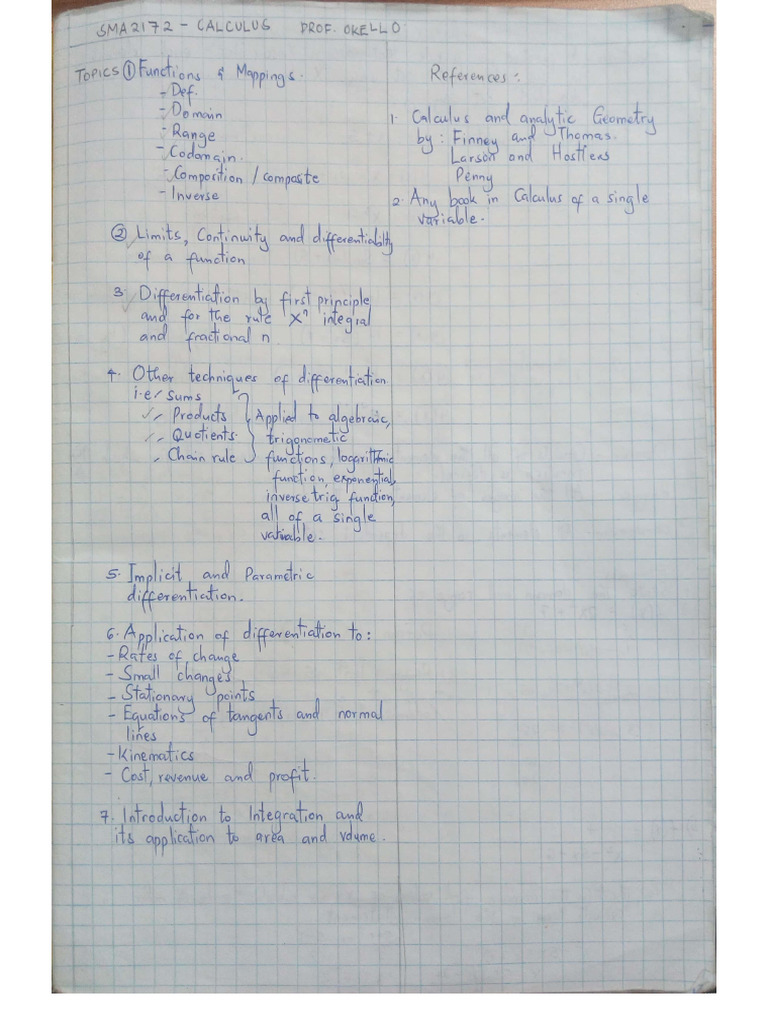 SMA2172 - CALCULUS PROF. OKELLO
TOPICS ① Functions & Mappings.
- Def.
- Domain
- Range
- Codomain.
- Composition / composite
- Inverse
② Limits, Continuity and differentiabilty
of a function
3. Differentiation by first principle
and for the rule xⁿ integral
and fractional n
4. Other techniques of differentiation
i.e/ sums
✓, Products
✓, Quotients.
, Chain rule
Applied to algebraic,
trigonometic
functions, logarithmic
function, exponential,
inverse trig function,
all of a single
variable.
5. Implicit and Parametric
differentiation.
6. Application of differentiation to:
- Rates of change
- Small changes
- Stationary points
- Equations of tangents and normal
lines
- Kinematics
- Cost, revenue and profit.
7. Introduction to Integration and
its application to area and volume.
References:
1. Calculus and analytic Geometry
by: Finney and Thomas.
Larson and Hostlers
Penny
2. Any book in Calculus of a single
variable.